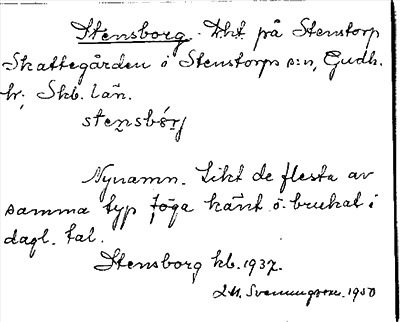 Stensborg. Lht på Stenstorp
Skattegården i Stenstorps s:n, Gudh.
hr; Skb. län.
stensbórj
Nynamn. Likt de flesta av
samma typ föga känt o. brukat i
dagl. tal.
Stensborg kb. 1937.
Svenungsson. 1950